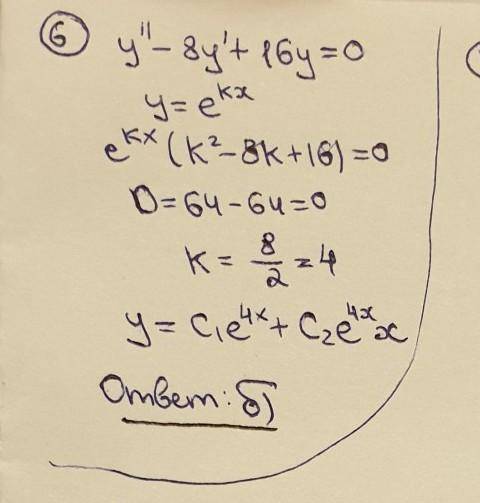 6 y'' - 8y' + 16y = 0
y = e^{kx}
e^{kx} (k² - 8k + 16) = 0
D = 64 - 64 = 0
k = 8/2 = 4
y = C₁e^{4x} + C₂e^{4x}x
Ответ: б)